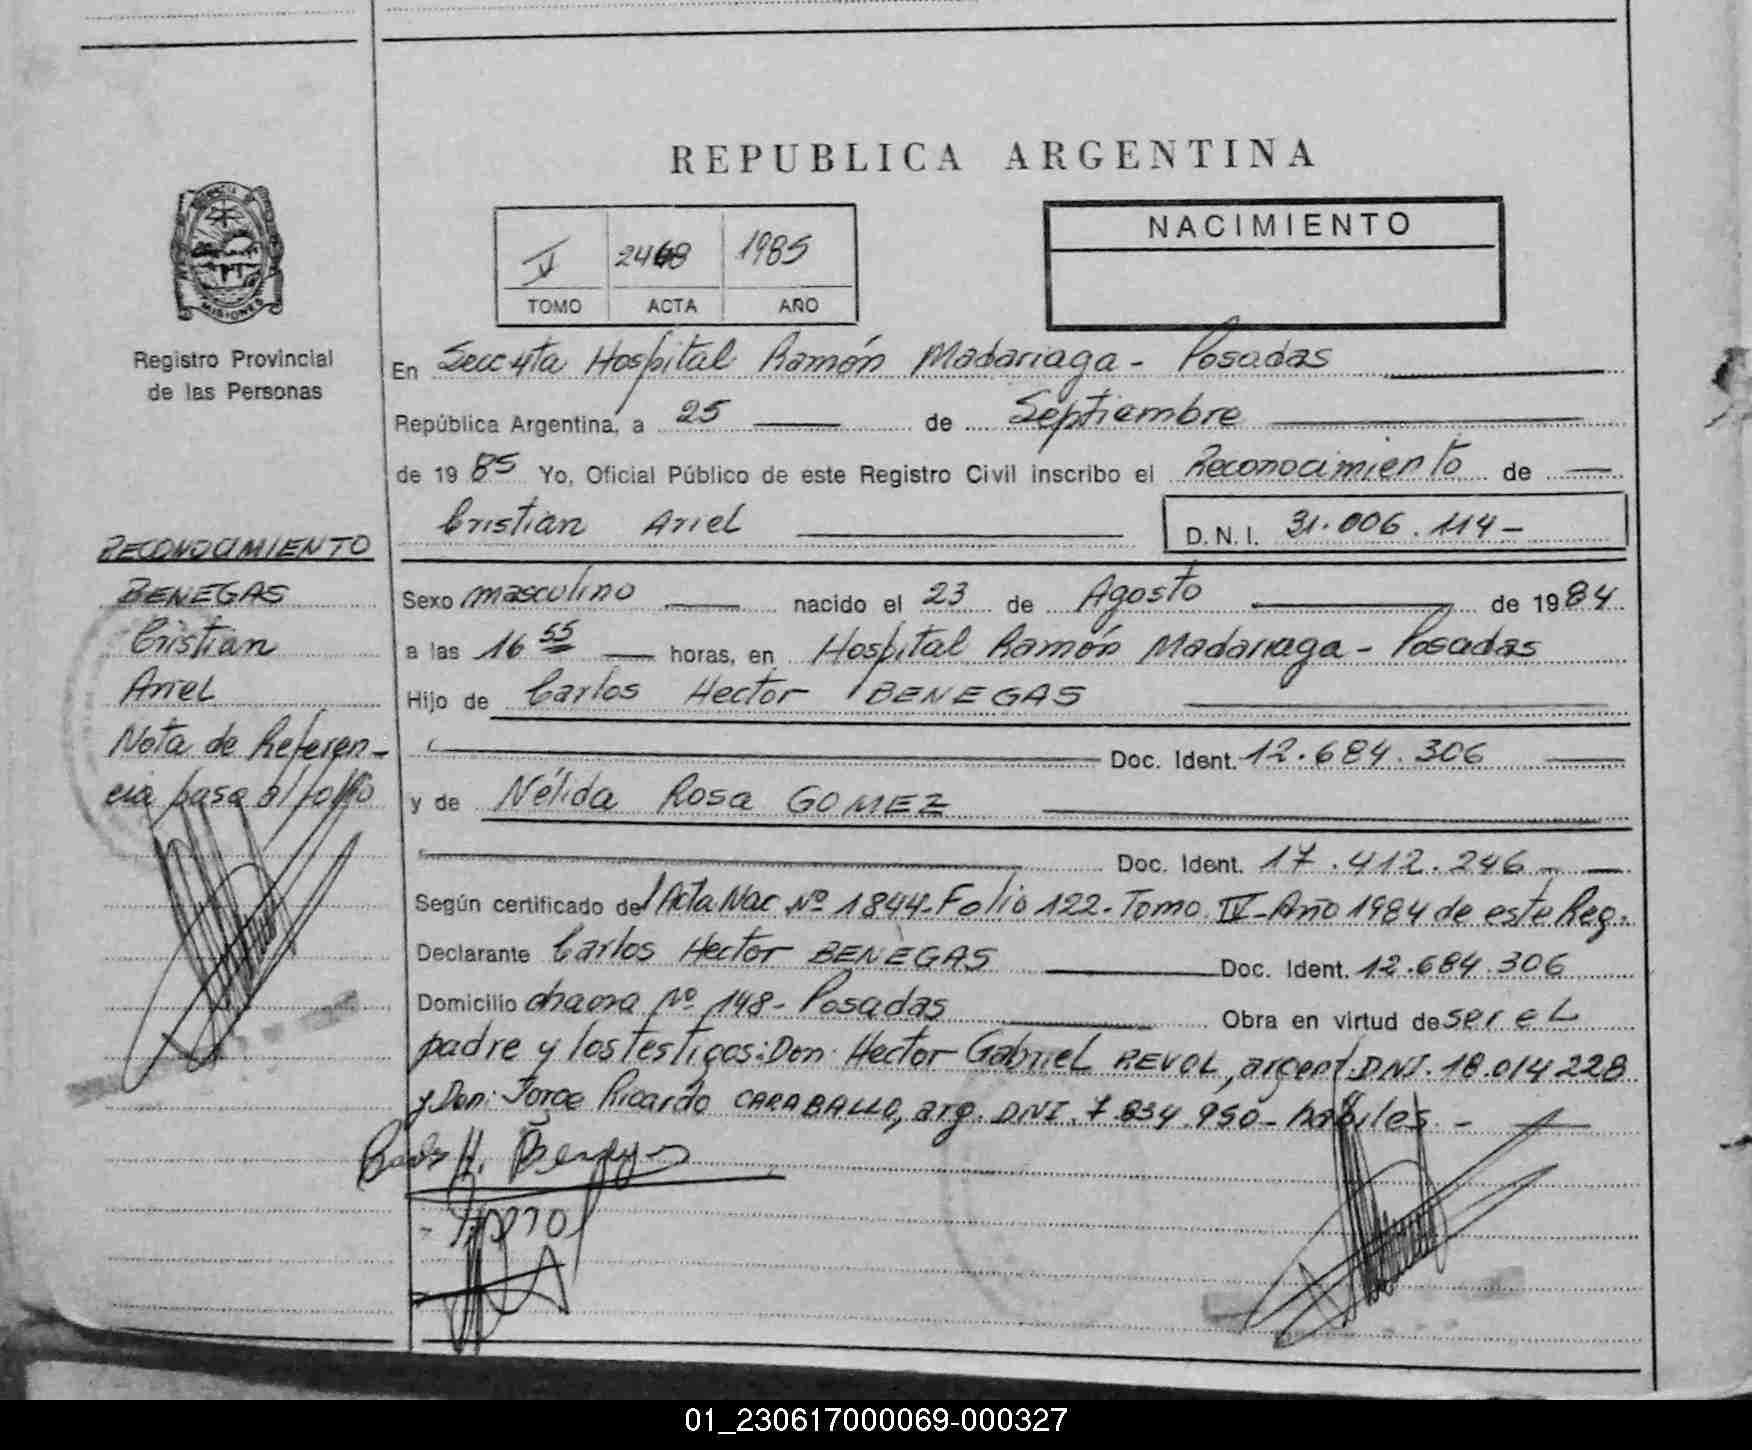 REPUBLICA ARGENTINA
NACIMIENTO
V 2468 1985
TOMO ACTA AÑO
MISIONES
Registro Provincial
de las Personas
En Secc 4ta Hospital Ramón Madariaga - Posadas
República Argentina, a 25 de Septiembre
de 1985 Yo, Oficial Público de este Registro Civil inscribo el Reconocimiento de
Cristian Ariel
D.N.I. 31.006.114-
RECONOCIMIENTO
BENEGAS
Cristian
Ariel
Nota de Referen-
cia pasa al folio
Sexo masculino nacido el 23 de Agosto de 1984
a las 16 55 horas, en Hospital Ramón Madariaga - Posadas
Hijo de Carlos Hector BENEGAS
Doc. Ident. 12.684.306
y de Nélida Rosa GOMEZ
Doc. Ident. 17.412.246
Según certificado del Acta Nac Nº 1844-Folio 122-Tomo IV-Año 1984 de este Reg.
Declarante Carlos Hector BENEGAS Doc. Ident. 12.684.306
Domicilio chacra Nº 148- Posadas Obra en virtud de ser el
padre y los testigos: Don: Hector Gabriel REVOL, argent. DNI. 18.014.228
y Don: Jorge Ricardo CARABALLO, arg. DNI. 7.834.950- habiles. -
01_230617000069-000327